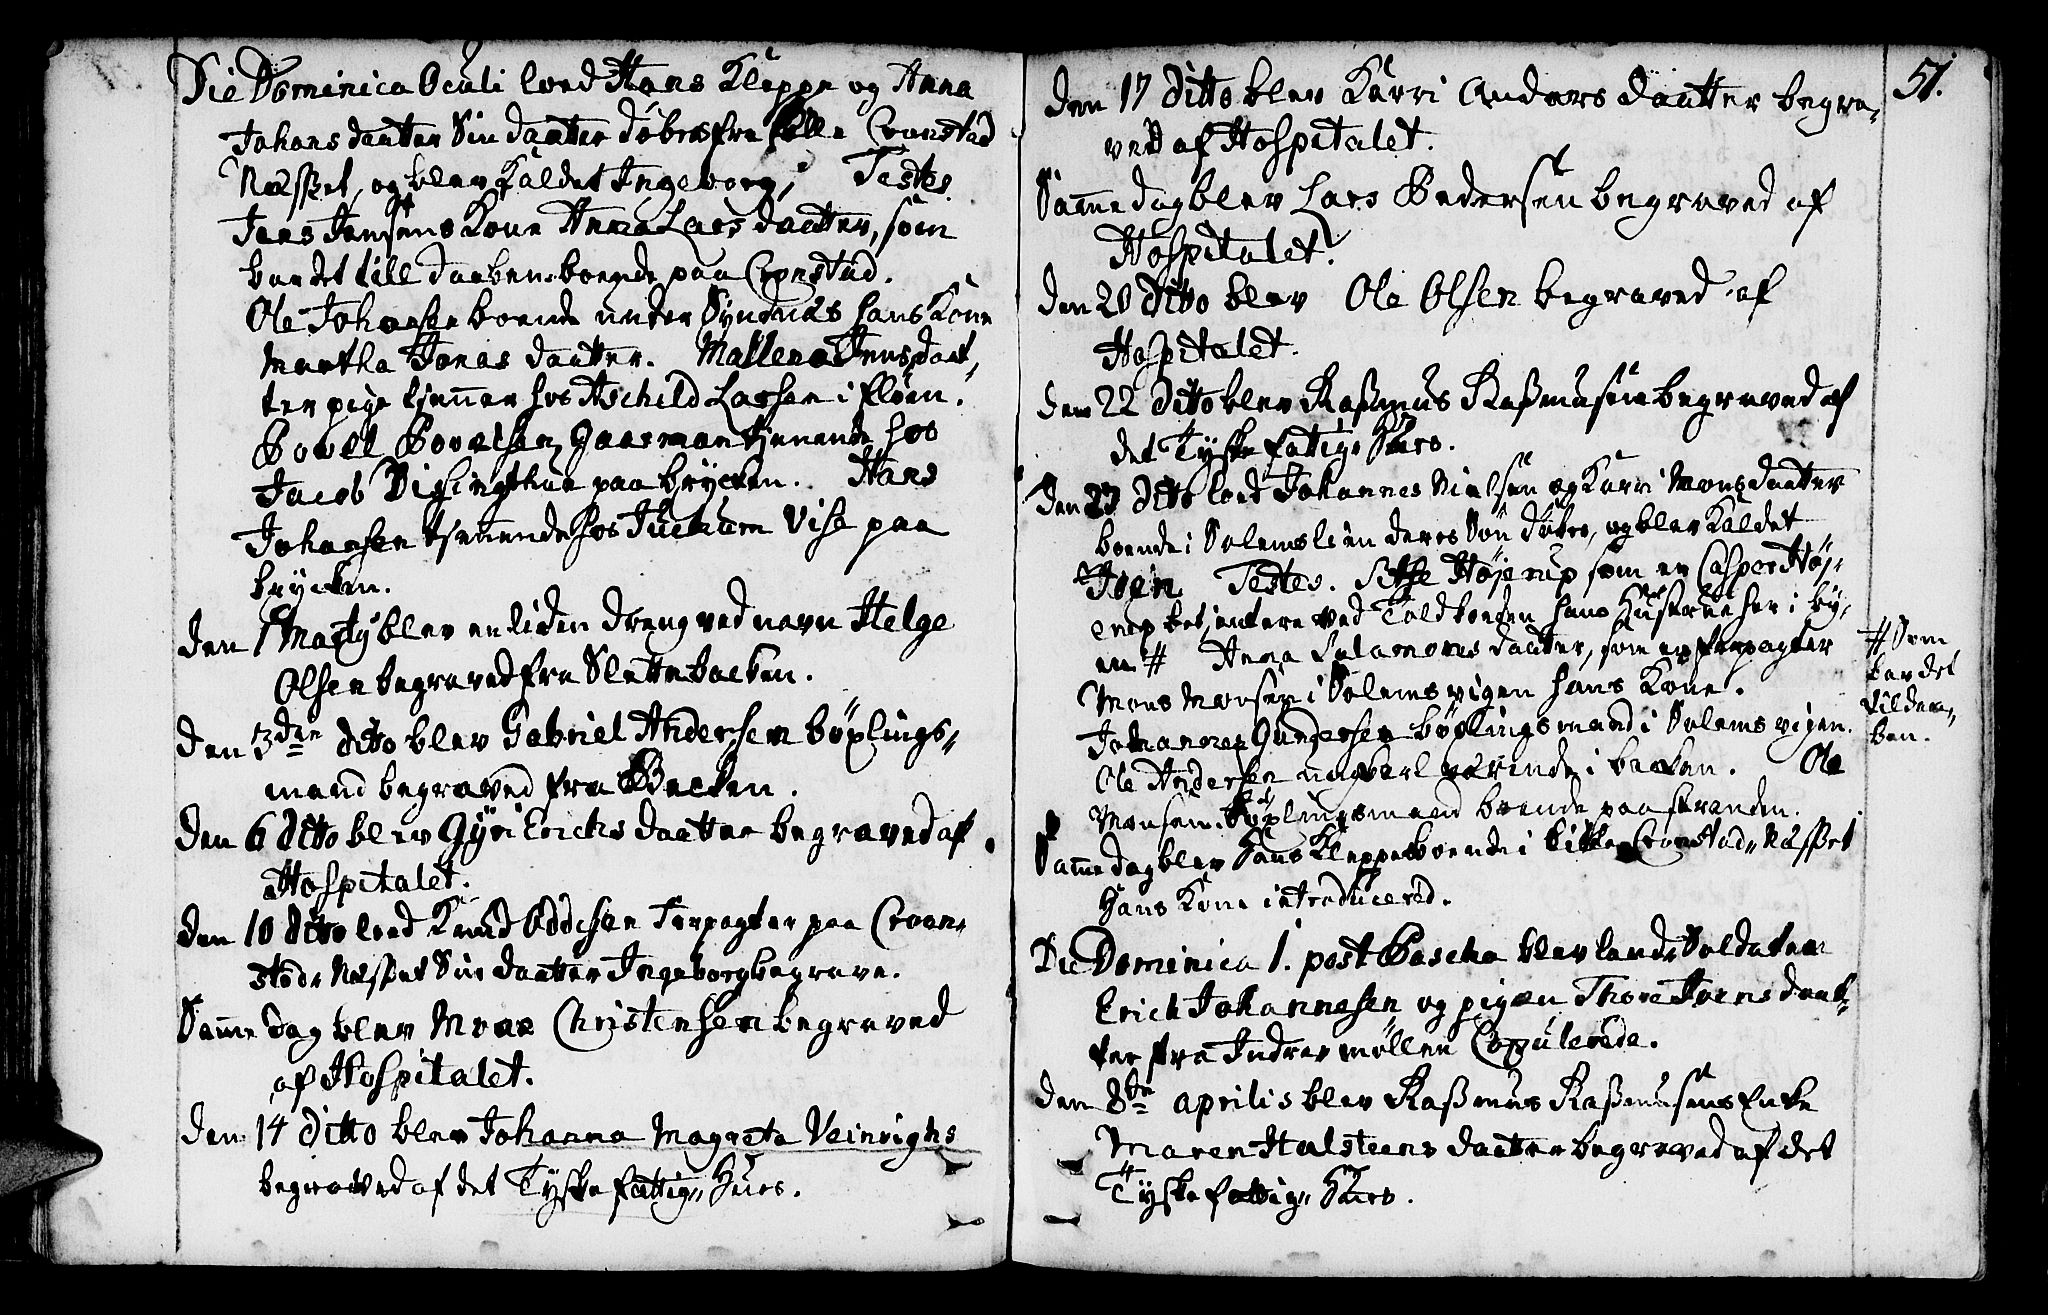 Die Dominica Oculi loed Hans Kleppe og Anna
Johans daatter Sin daatter døbes fra Cronstad
Næsset, og blev kaldet Ingeborg, Testes
Jens Jensens Kone Anna Lars daatter, som
bar det till daaben boende paa Cronstad.
Ole Johansen boende under Syndnæs hans Kone
Martha Jonas daatter. Mallena Jens daat,
ter pige tjenner hos Aschild Larsen i fløen.
Powel Powelsen, Gaarman tjenende hos
Jacob paa bryggen. Hans
Johansen tjenende hos Juchum Vise paa
bryggen.
Den 1 Marty blev en liden dreng ved navn Helge
Olsen begraved fra Slettebacken.
Den 3den dito blev Gabriel Andersen bøxlings„
mand begraved fra Becken.
Den 6 ditto blev Gyri Erichs daatter begraved af
Hospitalet.
Den 10 ditto loed Knud Oddesen Forpagter paa Cron„
stad Næsset Sin daatter Ingeborg begrave.
Samme dag blev Mons Christensen begraved
af Hospitalet.
Den 14 ditto blev Johanna Magreta Veinrighs
begraved af det Tyske fattig„ Huus.
51.
Den 17 ditto blev Karri Anders daatter begra„
ved af Hospitalet.
Samme dag blev Lars Pedersen begraved af
Hospitalet.
Den 20 ditto blev Ole Olsen begraved af
Hospitalet.
Den 22 ditto blev Raßmus Raßmusen begraved af
det Tyske fattig„ Huus.
Den 27 dito loed Johannes Nielsen og Karri Mons daatter
boende i Solemslien deres Søn døbes, og blev kaldet
Joen Testes. Sitse Højerup som er Casper Høj„
erup betjentere ved Toldboeden hans Husfrue her i by„
en # Anna Salamons daatter, som er forpagter
Mons Monsen i Solemsvigen hans Kone.
Johannes Gundersen bøxlingsmand i Solemsvigen.
Ole Andersen ungkarl værende i becken. Ole
Monsen bøxlingsmand boende paa stranden.
# Som
bar det
til daa„
ben.
Samme dag blev Hans Kleppe boende i Cronstad„ Næsset
Hans Kone introducered.
Die Dominica 1. post Pascha blev land„ Soldaten
Erich Johannesen og pigen Thore Joens daat„
ter fra Indre møllen Copulerede.
Den 8de aprilis blev Raßmus Raßmusens Enke
Maren Halsteens daatter begraved af det
Tyske fattig„ Huus.